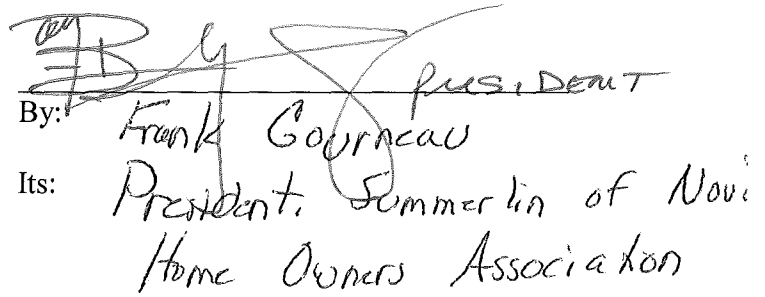 PRESIDENT
By: Frank Gourneau
Its: President, Summerlin of Novi
Home Owners Association